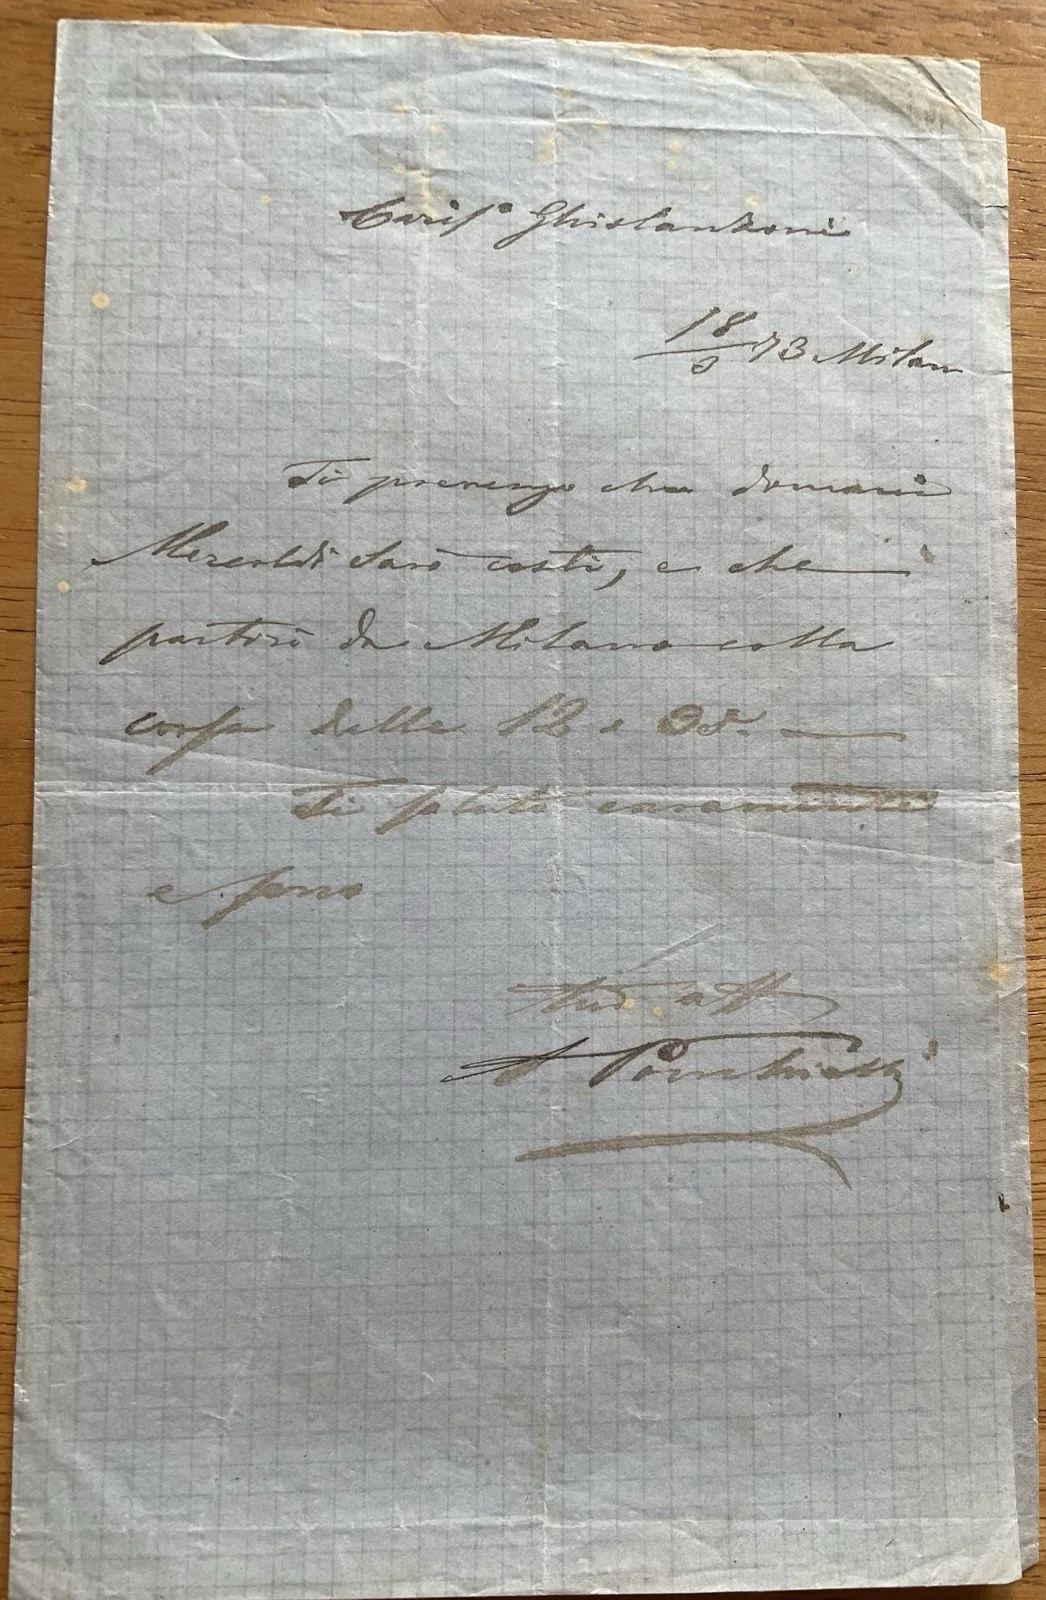 Carisº Ghislanzoni
18/ 73 Milan
Ti prevengo che domani
Mercoldì sarò costì, e che
partirò da Milano colla
corsa delle 12 e 05.
Ti saluto caramente
e sono
tuo aff
A Ponchielli